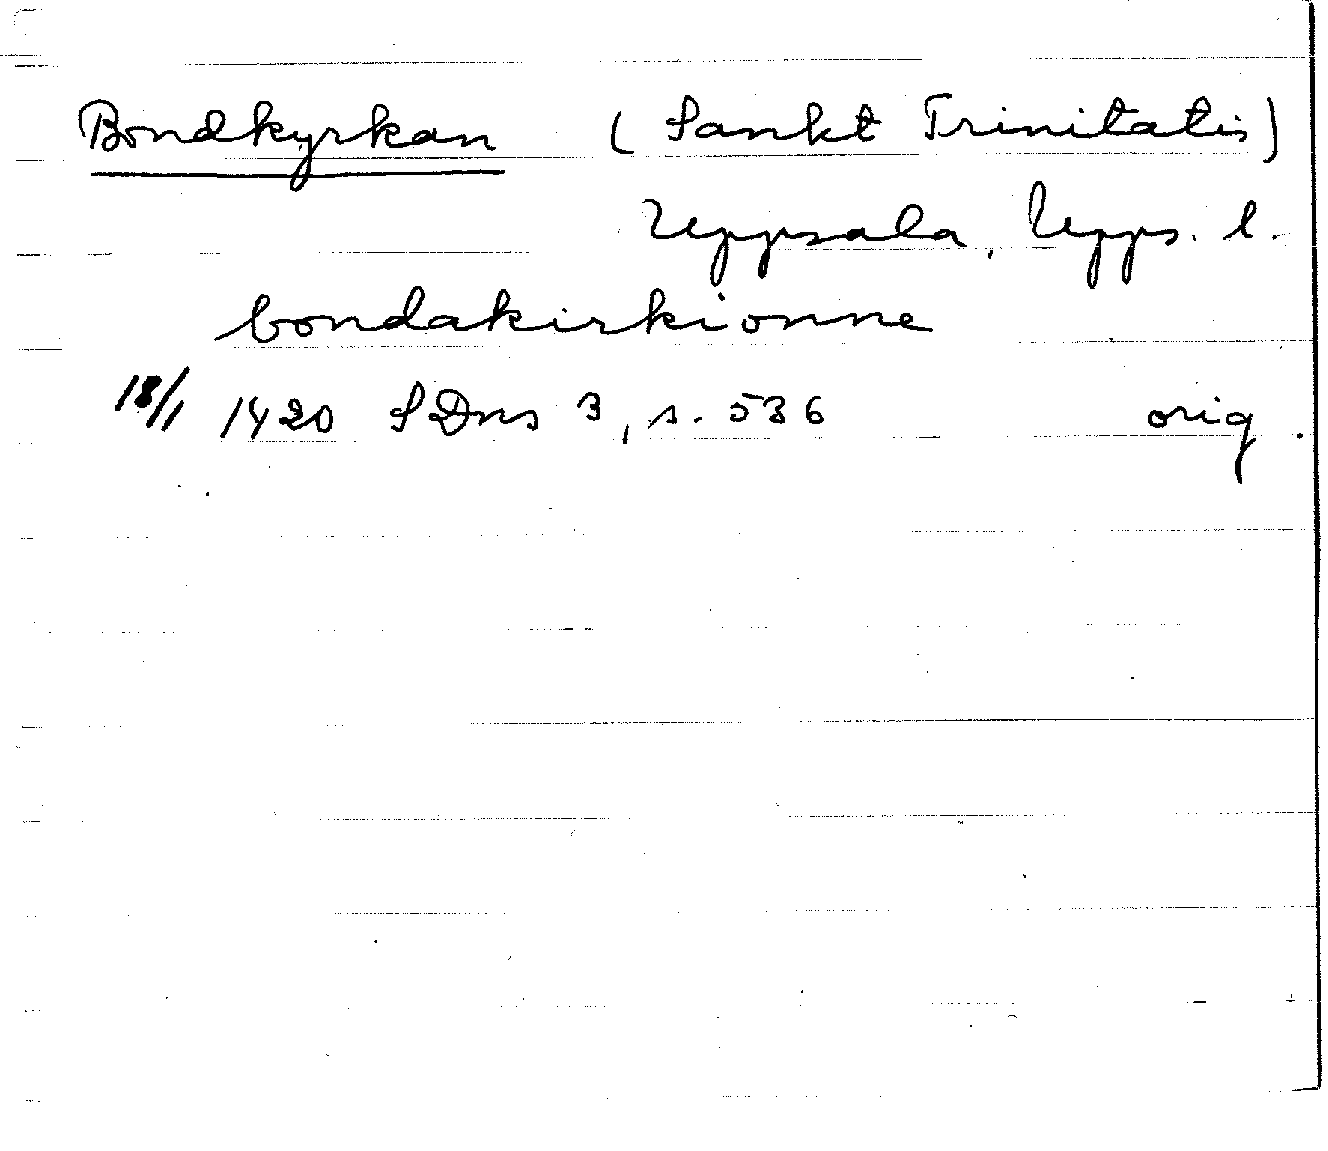 Bondkyrkan (Sankt Trinitatis)
Uppsala, Upps. l.
bondakirkionne
18/1 1420 SDns 3, s. 536 orig.